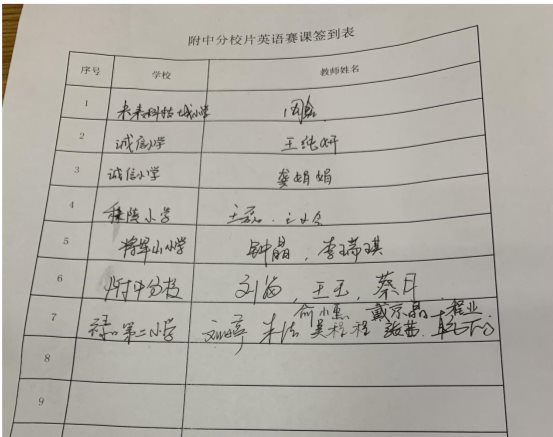 附中分校片英语赛课签到表
序号 学校 教师姓名
1 未来科技城小学 周
2 诚信小学 王纯妍
3 诚信小学 龚娟娟
4 秣陵小学 王磊
5 将军山小学 钟晶，李瑞琪
6 附中分校 刘海，王玉，蔡月
7 禄口第二小学 刘婷 朱洁 吴程程
8
9